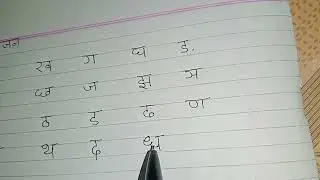 जन
ख ग घ ङ
छ ज झ ञ
ठ ड ढ ण
थ द ध